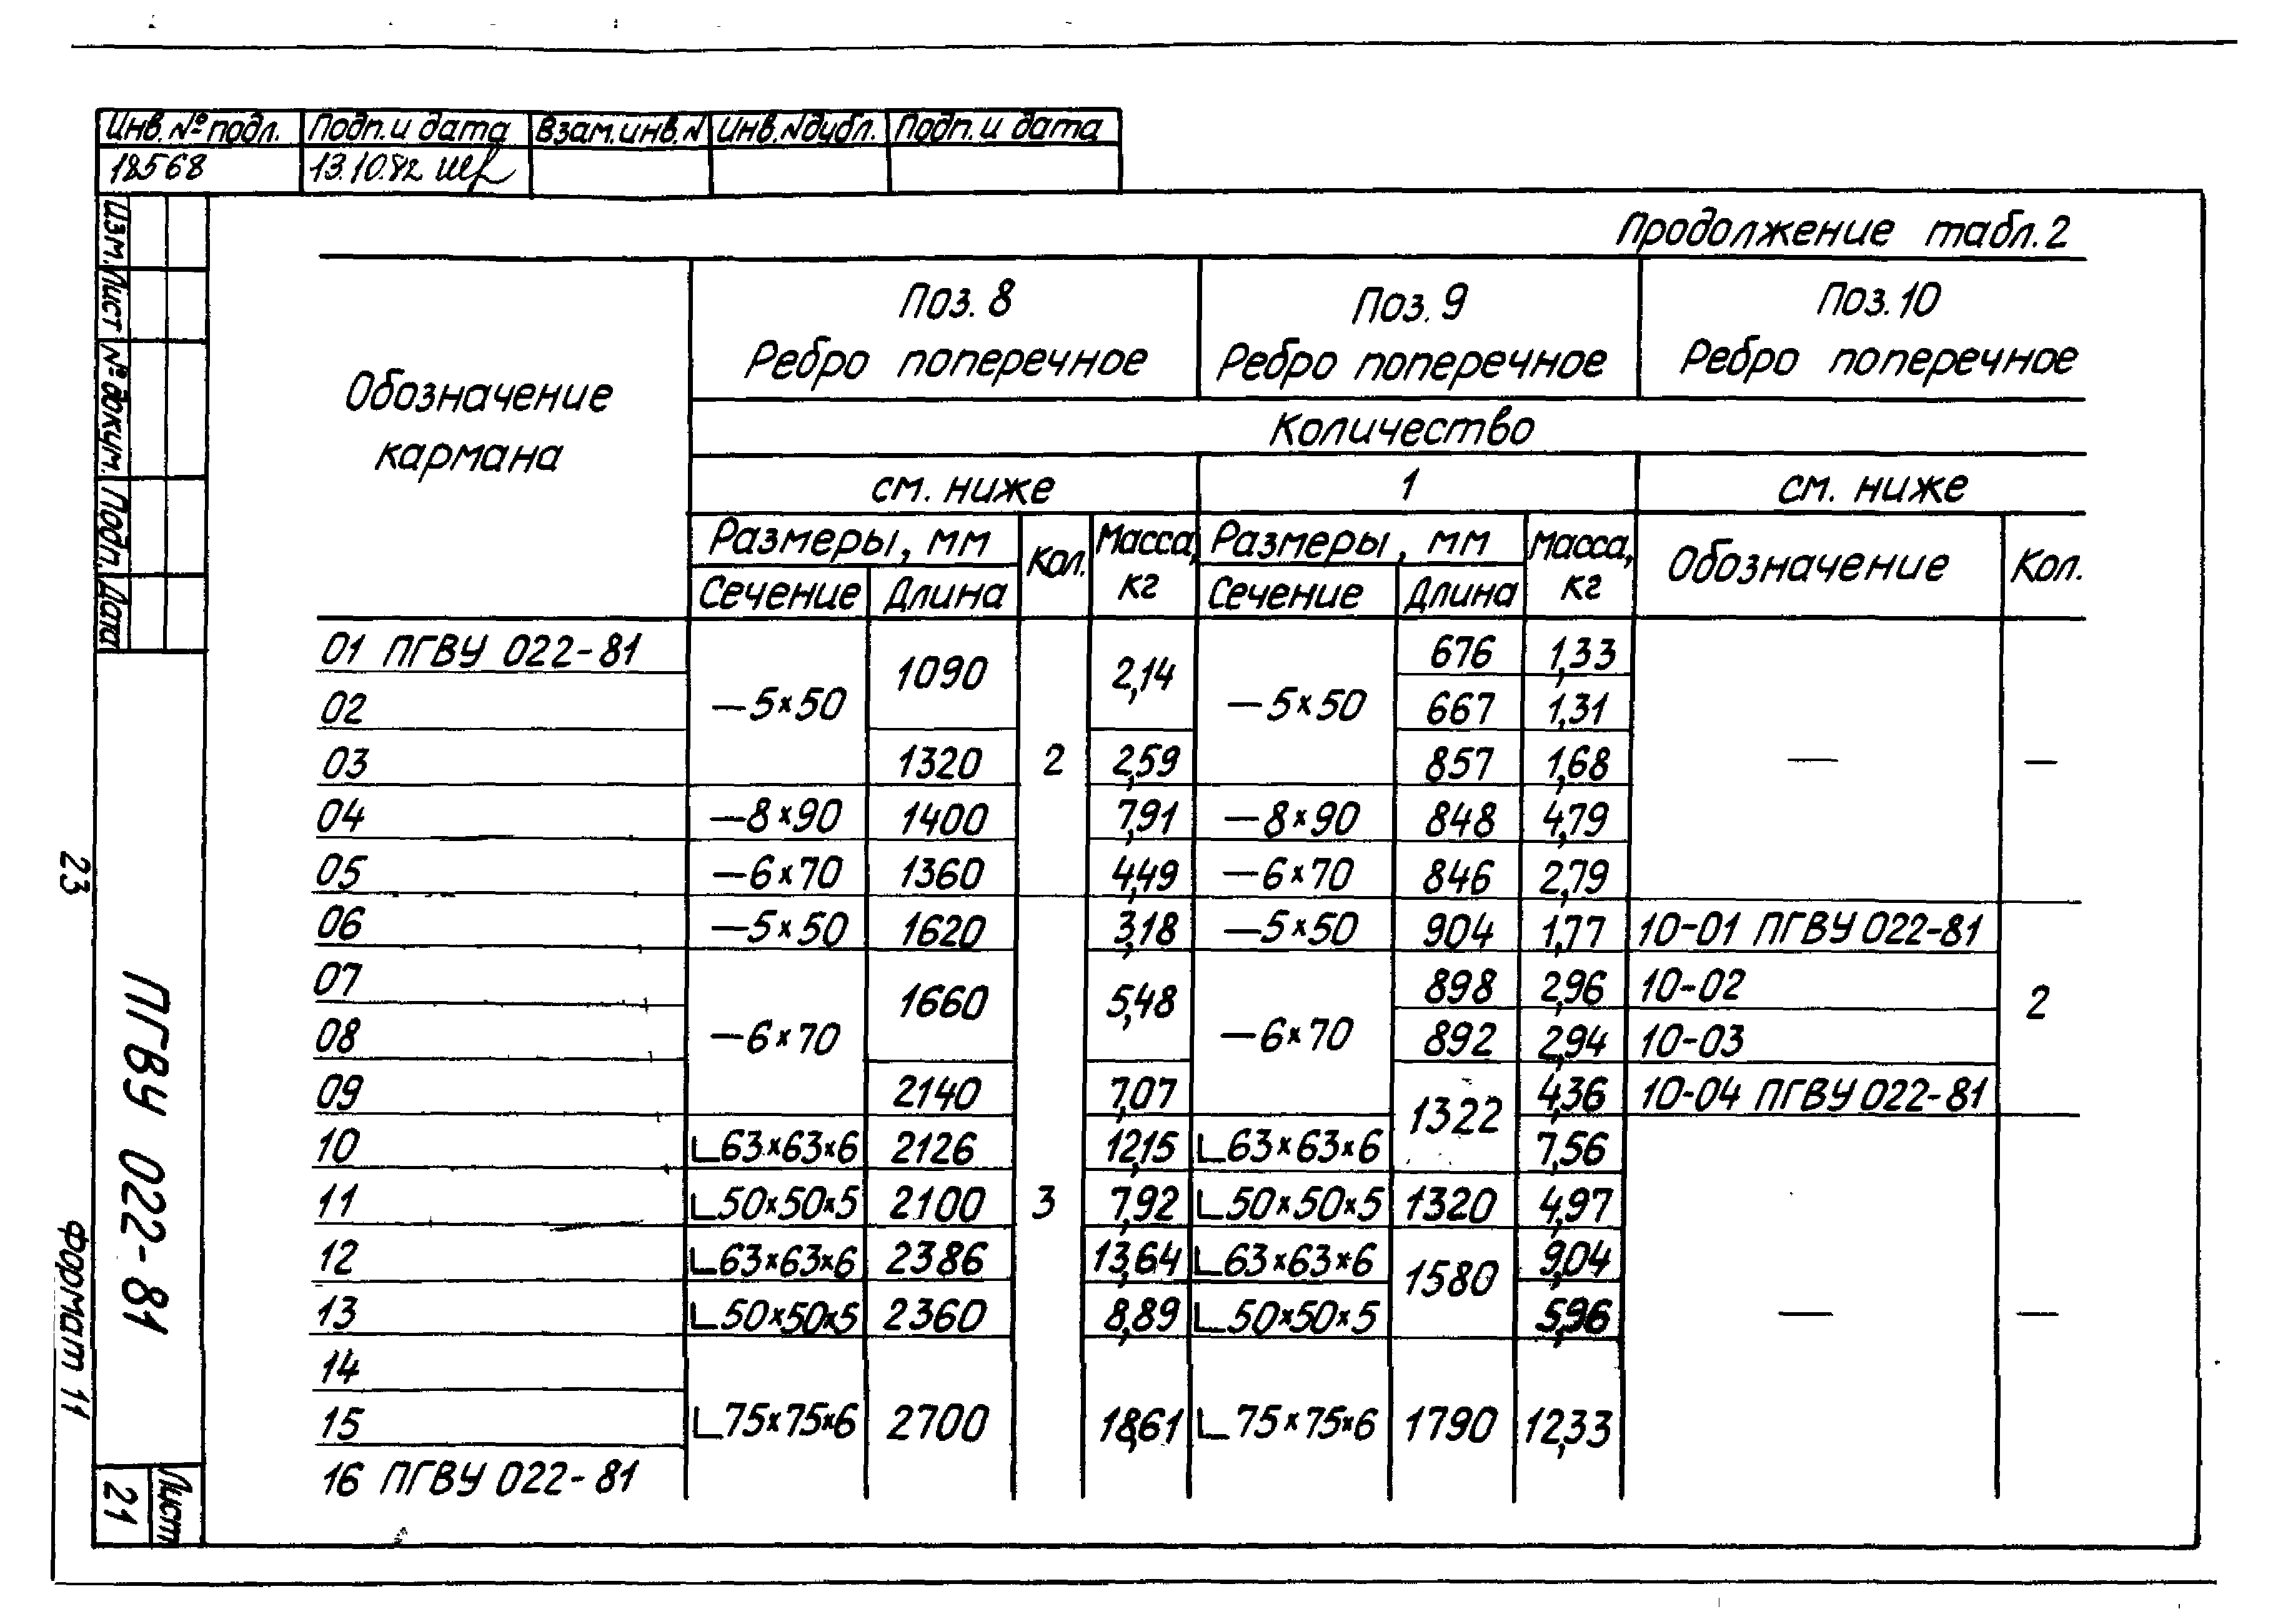 Инв. № подл. Подп. и дата Взам. инв. N Инв. N дубл. Подп. и дата
18568 13.10.82
Изм. Лист № докум. Подп. Дата
Продолжение табл. 2
Обозначение кармана
Поз. 8 Поз. 9 Поз. 10
Ребро поперечное Ребро поперечное Ребро поперечное
Количество
см. ниже 1 см. ниже
Размеры, мм Кол. Масса, кг Размеры, мм Масса, кг Обозначение Кол.
Сечение Длина Сечение Длина
01 ПГВУ 022-81 1090 2,14 676 1,33
02 –5×50 –5×50 667 1,31
03 1320 2 2,59 857 1,68 — —
04 –8×90 1400 7,91 –8×90 848 4,79
05 –6×70 1360 4,49 –6×70 846 2,79
06 –5×50 1620 3,18 –5×50 904 1,77 10-01 ПГВУ 022-81
07 1660 5,48 898 2,96 10-02 2
08 –6×70 –6×70 892 2,94 10-03
09 2140 7,07 1322 4,36 10-04 ПГВУ 022-81
10 ∟63×63×6 2126 12,15 ∟63×63×6 7,56
11 ∟50×50×5 2100 3 7,92 ∟50×50×5 1320 4,97
12 ∟63×63×6 2386 13,64 ∟63×63×6 1580 9,04
13 ∟50×50×5 2360 8,89 ∟50×50×5 5,96 — —
14
15 ∟75×75×6 2700 18,61 ∟75×75×6 1790 12,33
16 ПГВУ 022-81
23
ПГВУ 022-81
Формат 11
Лист
21